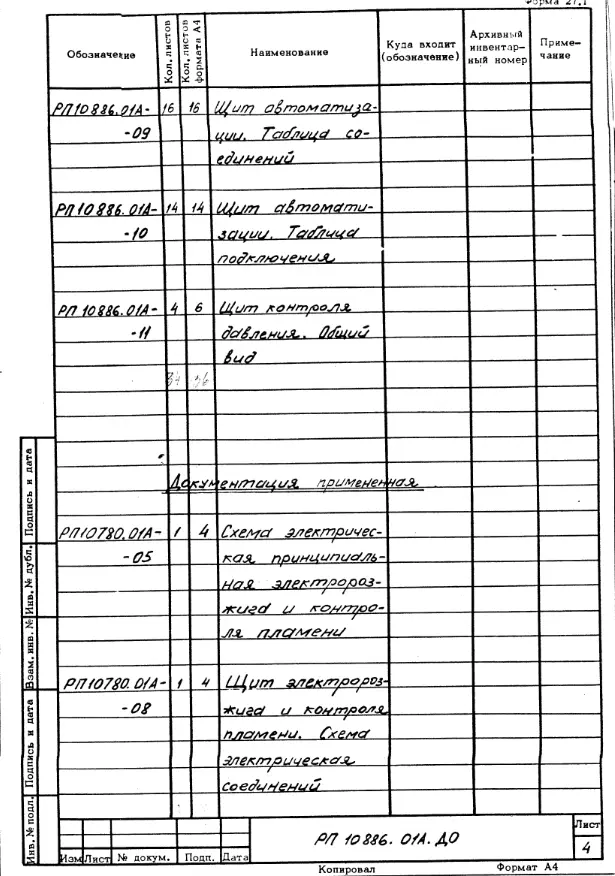 Форма 27.1
Обозначение Кол. листов Кол. листов формата А4 Наименование Куда входит (обозначение) Архивный инвентарный номер Примечание
РП10886.01А- 16 16 Щит автоматиза-
-09 ции. Таблица со-
единений
РП10886.01А- 14 14 Щит автомати-
-10 зации. Таблица
подключения
РП 10886.01А- 4 6 Щит контроля
-11 давления. Общий
вид
34 36
Документация примененная
РП10780.01А- 1 4 Схема электричес-
-05 кая принципиаль-
ная электророз-
жига и контро-
ля пламени
РП10780.01А- 1 4 Щит электророз-
-08 жига и контроля
пламени. Схема
электрическая
соединений
Подпись и дата
Инв. № дубл.
Взам. инв. №
Подпись и дата
Инв. № подл.
РП 10886. 01А. ДО
Лист
4
Изм Лист № докум. Подп. Дата
Копировал Формат А4